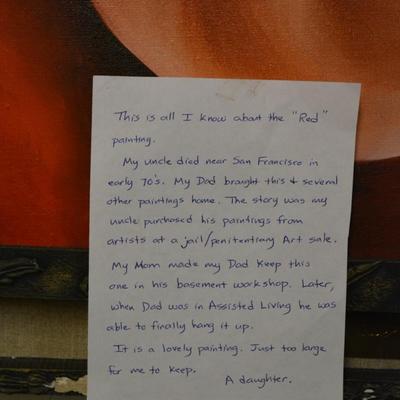 This is all I know about the "Red"
painting.
My uncle died near San Francisco in
early 70's. My Dad brought this & several
other paintings home. The story was my
uncle purchased his paintings from
artists at a jail/penitentiary Art sale.
My Mom made my Dad keep this
one in his basement workshop. Later,
when Dad was in Assisted Living he was
able to finally hang it up.
It is a lovely painting. Just too large
for me to keep.
A daughter.